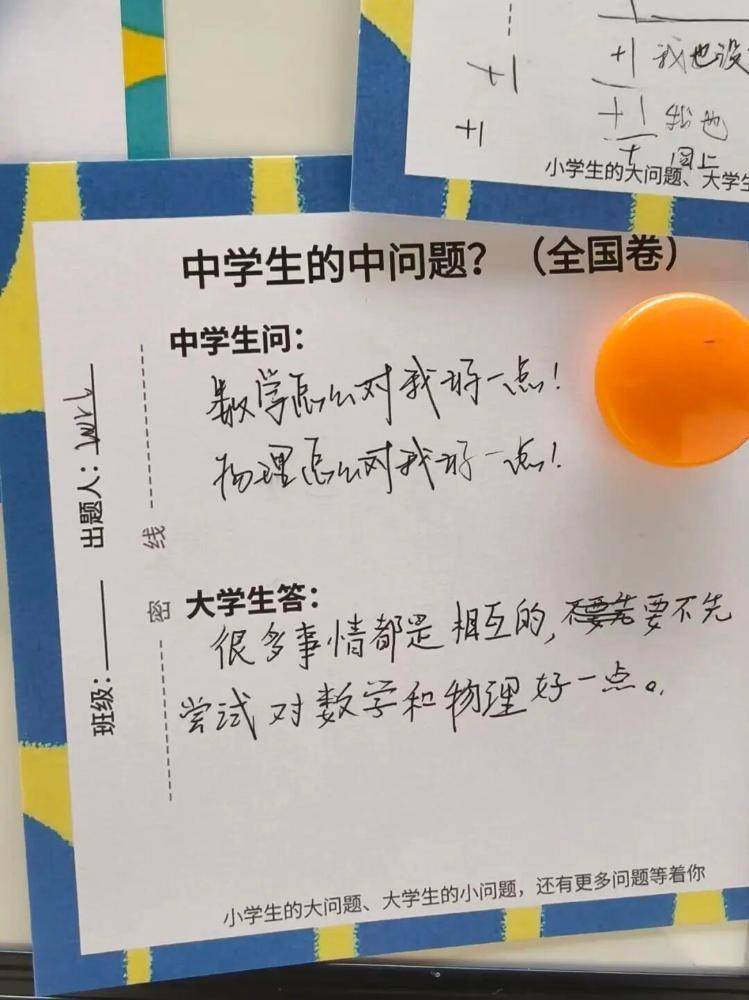 +1
+1 我也没
+1
+1 我也
+ 同上
小学生的大问题、大学生
中学生的中问题？（全国卷）
中学生问：
数学怎么对我好一点！
物理怎么对我好一点！
出题人：wrL
班级：
密 线
大学生答：
很多事情都是相互的，不要先要不先
尝试对数学和物理好一点。
小学生的大问题、大学生的小问题，还有更多问题等着你